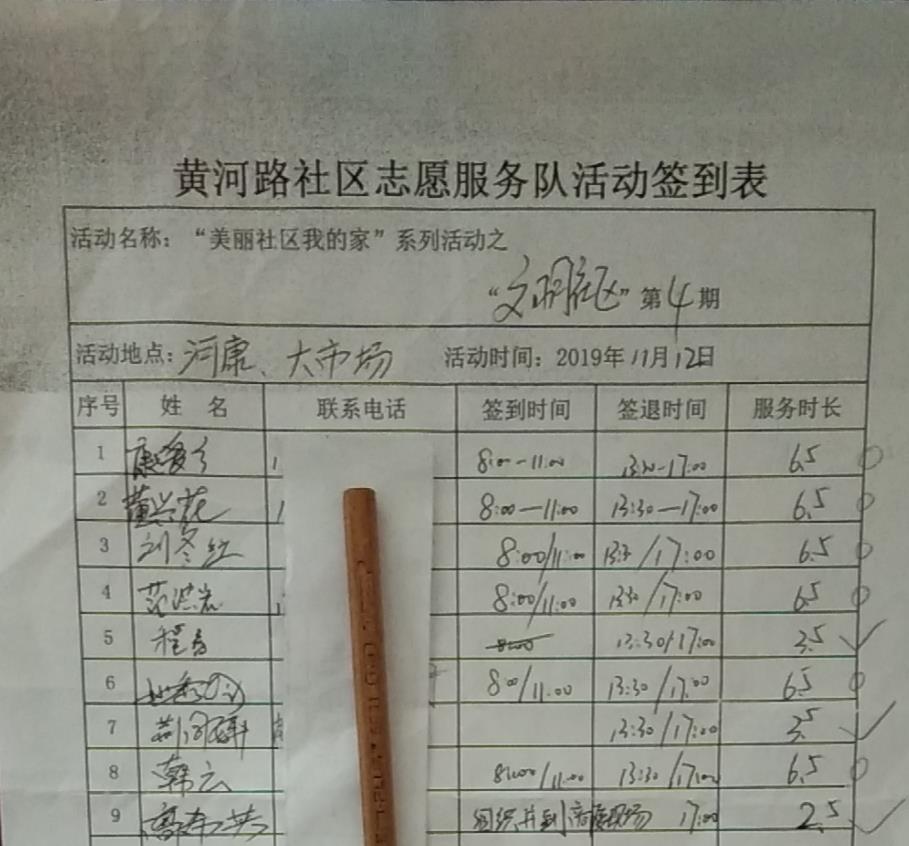 黄河路社区志愿服务队活动签到表
活动名称：“美丽社区我的家”系列活动之
“文明社区”第4期
活动地点：河康、大市场 活动时间：2019年11月12日
序号 姓名 联系电话 签到时间 签退时间 服务时长
1 8:00-11:00 13:30-17:00 6.5
2 黄兴花 8:00-11:00 13:30-17:00 6.5
3 刘冬红 8:00/11:00 13:30/17:00 6.5
4 8:00/11:00 13:30/17:00 6.5
5 程春 13:30/17:00 3.5
6 8:00/11:00 13:30/17:00 6.5
7 13:30/17:00 3.5
8 韩云 8:00/11:00 13:30/17:00 6.5
9 组织并到 现场 17:00 2.5